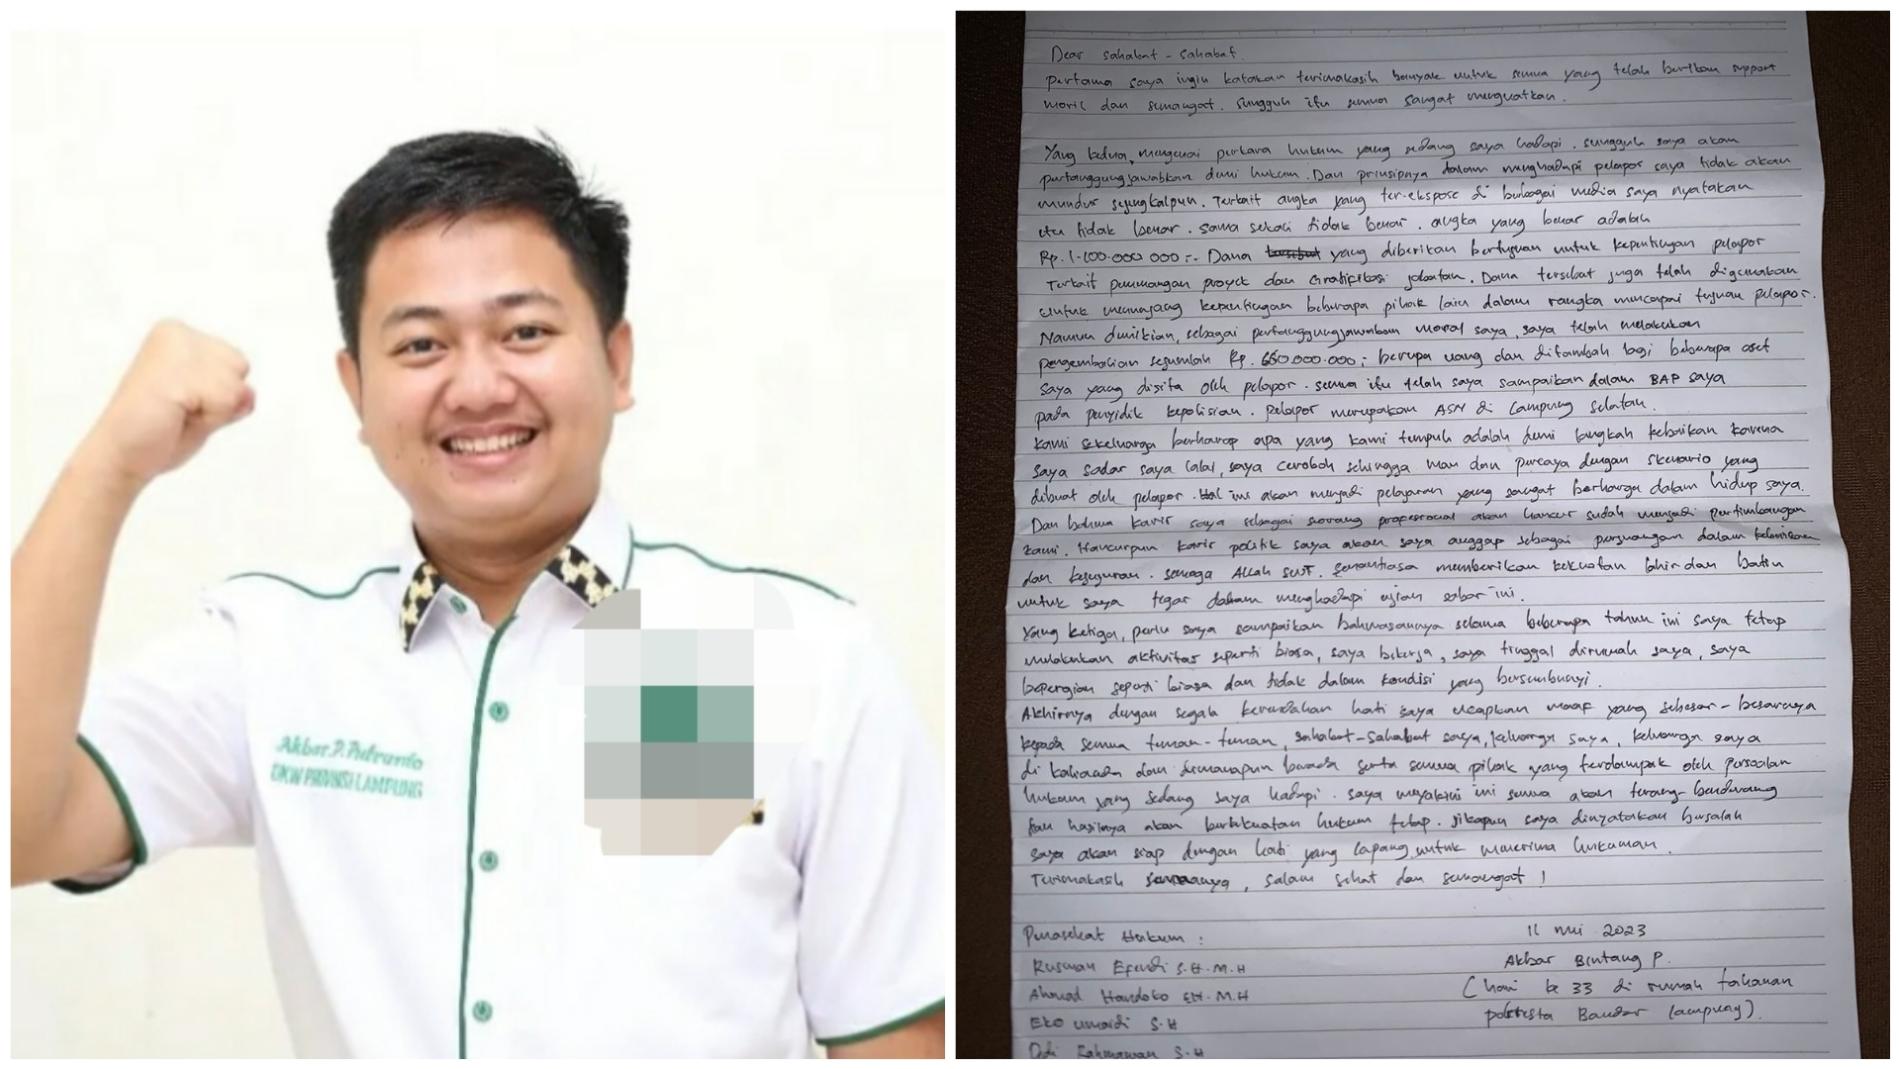 Akbar P. Putranto
DKW PROVINSI LAMPUNG
Dear sahabat - sahabat.
pertama saya ingin katakan terimakasih banyak untuk semua yang telah berikan support
moril dan semangat. sungguh itu semua sangat menguatkan.
Yang kedua, mengenai perkara hukum yang sedang saya hadapi. sungguh saya akan
pertanggungjawabkan demi hukum. Dan prinsipnya dalam menghadapi pelapor saya tidak akan
mundur sejengkalpun. Terkait angka yang ter-ekspose di berbagai media saya nyatakan
itu tidak benar. sama sekali tidak benar. angka yang benar adalah
Dana yang diberikan bertujuan untuk kepentingan pelapor
Terkait pemenangan proyek dan Gratifikasi jabatan. Dana tersebut juga telah digunakan
untuk menunjang kepentingan beberapa pihak lain dalam rangka mencapai tujuan pelapor.
Namun demikian, sebagai pertanggungjawaban moral saya, saya telah melakukan
pengembalian sejumlah Rp. 650.000.000; berupa uang dan ditambah lagi beberapa aset
saya yang disita oleh pelapor. semua itu telah saya sampaikan dalam BAP saya
pada penyidik kepolisian. pelapor merupakan ASN di Lampung selatan.
kami sekeluarga berharap apa yang kami tempuh adalah demi langkah kebaikan karena
saya sadar saya lalai, saya ceroboh sehingga mau dan percaya dengan skenario yang
dibuat oleh pelapor. Hal ini akan menjadi pelajaran yang sangat berharga dalam hidup saya.
Dan bahwa karir saya sebagai seorang profesional akan hancur sudah menjadi pertimbangan
kami. Hancurpun karir politik saya akan saya anggap sebagai perjuangan dalam
dan kejujuran. semoga Allah SWT. senantiasa memberikan kekuatan lahir dan batin
untuk saya tegar dalam menghadapi ujian sabar ini.
Yang ketiga, perlu saya sampaikan bahwasannya selama beberapa tahun ini saya tetap
melakukan aktivitas seperti biasa, saya bekerja, saya tinggal dirumah saya, saya
bepergian seperti biasa dan tidak dalam kondisi yang bersembunyi.
Akhirnya dengan segala kerendahan hati saya ucapkan maaf yang sebesar-besarnya
kepada semua teman-teman, sahabat-sahabat saya, keluarga saya, keluarga saya
di kalianda dan dimanapun berada serta semua pihak yang terdampak oleh persoalan
hukum yang sedang saya hadapi. saya meyakini ini semua akan terang-benderang
dan hasilnya akan berkekuatan hukum tetap. jikapun saya dinyatakan bersalah
saya akan siap dengan hati yang lapang untuk menerima hukuman.
Terimakasih semuanya, salam sehat dan semangat !
Penasehat Hukum :
Rusman Efendi S.H.M.H
Ahmad Handoko SH.M.H
Eko umaidi S.H
Rahmawan S.H
11 mei 2023
Akbar Bintang P.
(hari ke 33 di rumah tahanan
polresta Bandar Lampung).